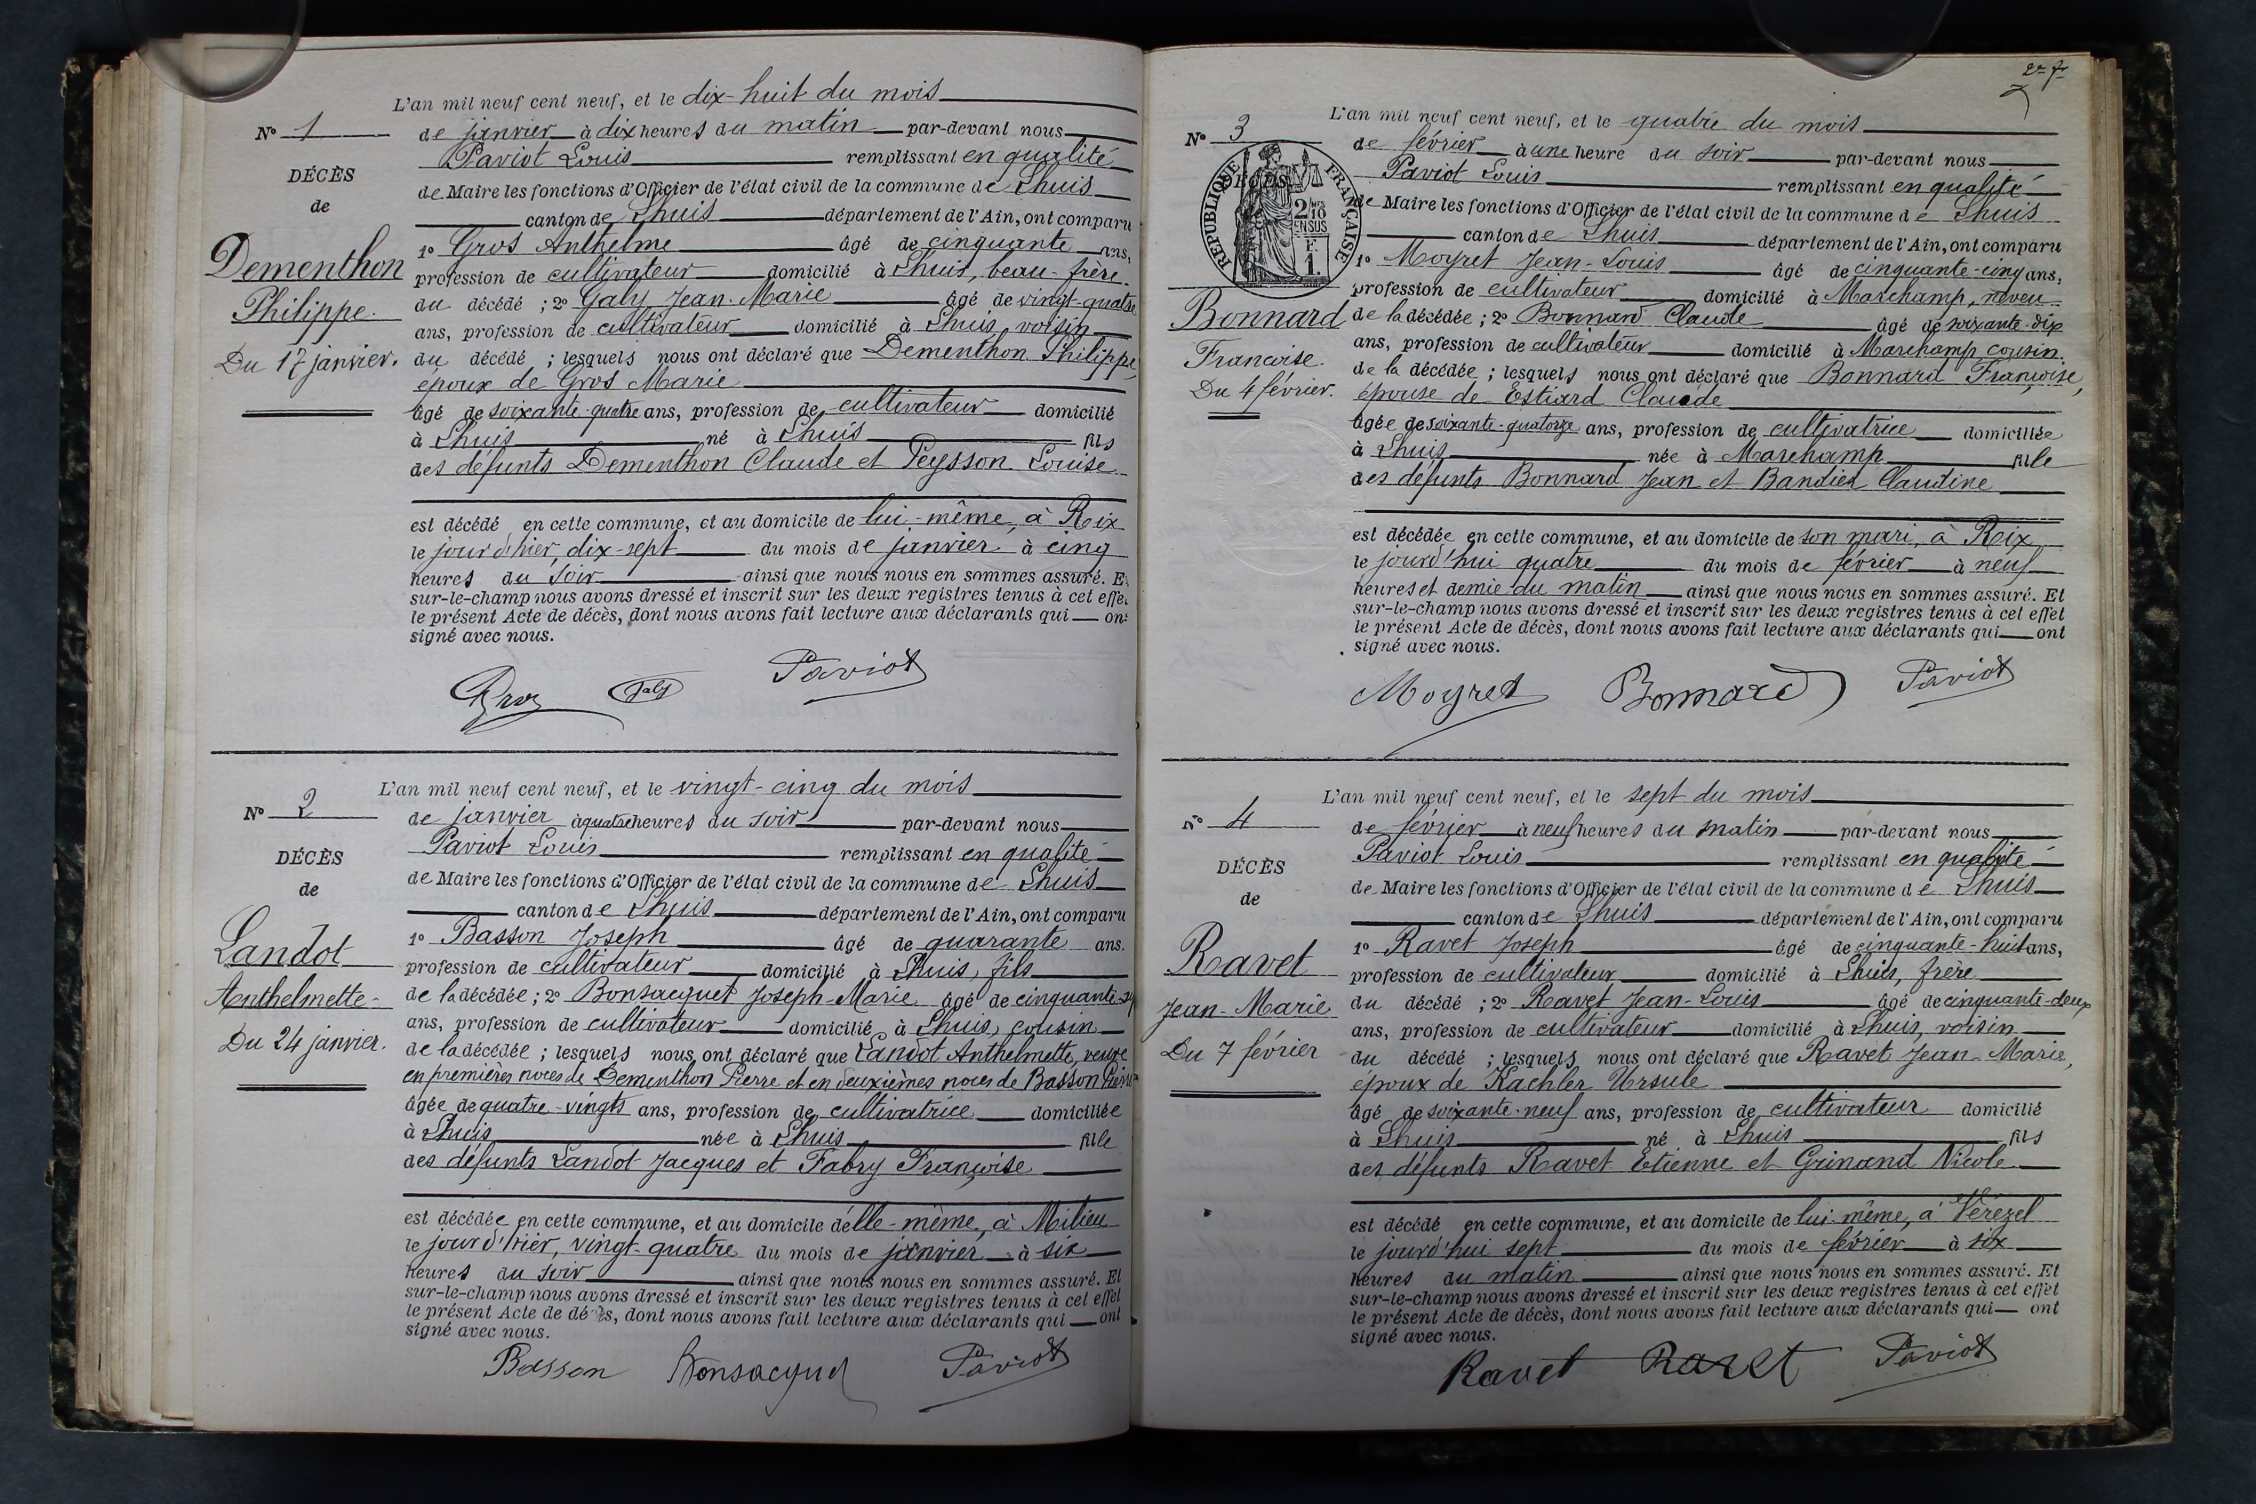 L'an mil neuf cent neuf, et le dix-huit du mois
N° 1
de janvier à dix heures du matin par-devant nous
Paviot Louis remplissant en qualité
DÉCÈS
de Maire les fonctions d'Officier de l'état civil de la commune de Lhuis
de
canton de Lhuis département de l'Ain, ont comparu
1° Gros Anthelme âgé de cinquante ans,
Dementhon
profession de cultivateur domicilié à Lhuis, beau-frère
Philippe.
du décédé ; 2° Galy Jean-Marie âgé de vingt-quatre
ans, profession de cultivateur domicilié à Lhuis, voisin
Du 17 janvier.
du décédé ; lesquels nous ont déclaré que Dementhon Philippe,
époux de Gros Marie
âgé de soixante-quatre ans, profession de cultivateur domicilié
à Lhuis né à Lhuis fils
des défunts Dementhon Claude et Peysson Louise
est décédé en cette commune, et au domicile de lui-même, à Rix
le jour d'hier, dix-sept du mois de janvier à cinq
heures du soir ainsi que nous nous en sommes assuré. Et
sur-le-champ nous avons dressé et inscrit sur les deux registres tenus à cet effet
le présent Acte de décès, dont nous avons fait lecture aux déclarants qui ont
signé avec nous.
Gros Galy Paviot
L'an mil neuf cent neuf, et le vingt-cinq du mois
N° 2
de janvier à quatre heures du soir par-devant nous
Paviot Louis remplissant en qualité
DÉCÈS
de Maire les fonctions d'Officier de l'état civil de la commune de Lhuis
de
canton de Lhuis département de l'Ain, ont comparu
1° Basson Joseph âgé de quarante ans.
Landot
profession de cultivateur domicilié à Lhuis, fils
Anthelmette
de la décédée ; 2° Bonsacquet Joseph-Marie âgé de cinquante
ans, profession de cultivateur domicilié à Lhuis, cousin
Du 24 janvier.
de la décédée ; lesquels nous ont déclaré que Landot Anthelmette, veuve
en premières noces de Dementhon Pierre et en deuxièmes noces de Basson Pierre
âgée de quatre-vingts ans, profession de cultivatrice domiciliée
à Lhuis née à Lhuis fille
des défunts Landot Jacques et Fabry Françoise
est décédée en cette commune, et au domicile d'elle-même, à Milieu
le jour d'hier, vingt-quatre du mois de janvier à six
heures du soir ainsi que nous nous en sommes assuré. Et
sur-le-champ nous avons dressé et inscrit sur les deux registres tenus à cet effet
le présent Acte de décès, dont nous avons fait lecture aux déclarants qui ont
signé avec nous.
Basson Bonsacquet Paviot
L'an mil neuf cent neuf, et le quatre du mois
N° 3
de février à une heure du soir par-devant nous
Paviot Louis remplissant en qualité
RÉPUBLIQUE FRANÇAISE
de Maire les fonctions d'Officier de l'état civil de la commune de Lhuis
canton de Lhuis département de l'Ain, ont comparu
1° Moyret Jean-Louis âgé de cinquante-cinq ans,
profession de cultivateur domicilié à Marchamp, neveu
Bonnard
de la décédée ; 2° Bonnard Claude âgé de soixante-dix
ans, profession de cultivateur domicilié à Marchamp, cousin
Françoise.
de la décédée ; lesquels nous ont déclaré que Bonnard Françoise,
Du 4 février.
épouse de Estiard Claude
âgée de soixante-quatorze ans, profession de cultivatrice domiciliée
à Lhuis née à Marchamp fille
des défunts Bonnard Jean et Bandier Claudine
est décédée en cette commune, et au domicile de son mari, à Rix
le jourd'hui quatre du mois de février à neuf
heures et demie du matin ainsi que nous nous en sommes assuré. Et
sur-le-champ nous avons dressé et inscrit sur les deux registres tenus à cet effet
le présent Acte de décès, dont nous avons fait lecture aux déclarants qui ont
signé avec nous.
Moyret Bonnard Paviot
L'an mil neuf cent neuf, et le sept du mois
N° 4
de février à neuf heures du matin par-devant nous
Paviot Louis remplissant en qualité
DÉCÈS
de Maire les fonctions d'Officier de l'état civil de la commune de Lhuis
de
canton de Lhuis département de l'Ain, ont comparu
1° Ravet Joseph âgé de cinquante-huit ans,
Ravet
profession de cultivateur domicilié à Lhuis, frère
Jean-Marie
du décédé ; 2° Ravet Jean-Louis âgé de cinquante-deux
ans, profession de cultivateur domicilié à Lhuis, voisin
Du 7 février
du décédé ; lesquels nous ont déclaré que Ravet Jean-Marie,
époux de Kachler Ursule
âgé de soixante-neuf ans, profession de cultivateur domicilié
à Lhuis né à Lhuis fils
des défunts Ravet Etienne et Grinand Nicole
est décédé en cette commune, et au domicile de lui-même, à Vérézel
le jourd'hui sept du mois de février à six
heures du matin ainsi que nous nous en sommes assuré. Et
sur-le-champ nous avons dressé et inscrit sur les deux registres tenus à cet effet
le présent Acte de décès, dont nous avons fait lecture aux déclarants qui ont
signé avec nous.
Ravet Ravet Paviot